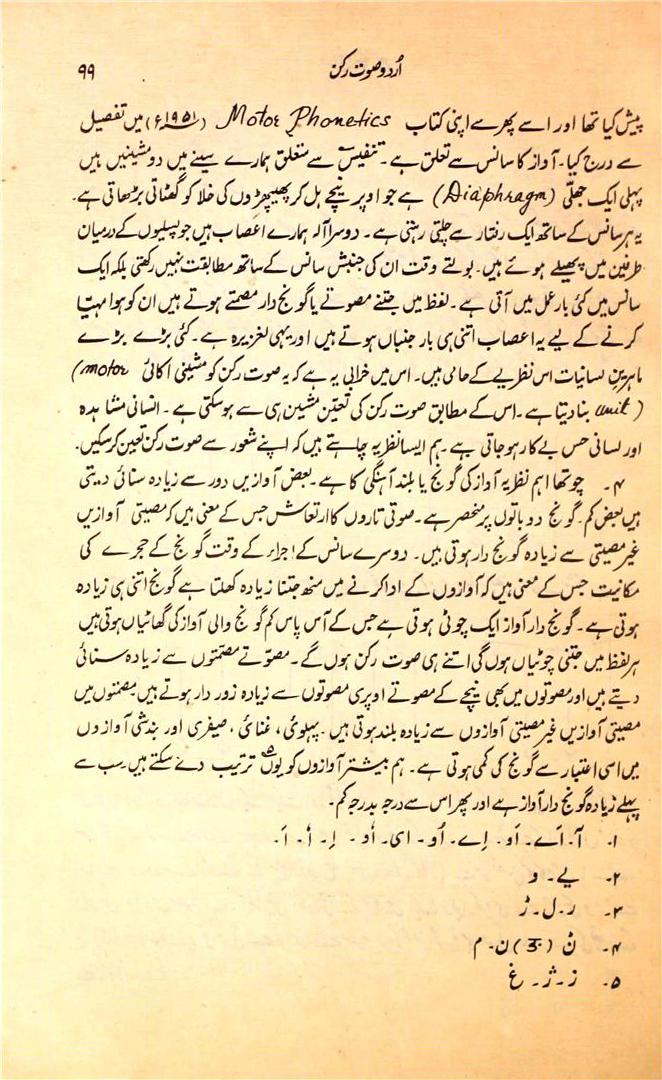 اُردو صوت رکن ۹۹
پیش کیا تھا اور اسے پھر سے اپنی کتاب Motor Phonetics (۱۹۵۱ء) میں تفصیل
سے درج کیا۔ آواز کا سانس سے تعلق ہے۔ تنفیس سے متعلق ہمارے سینے میں دو مشینیں ہیں
پہلی ایک جھلّی (Diaphragm) ہے جو اوپر نیچے ہل کر پھیپھڑوں کی خلا کو گھٹاتی بڑھاتی ہے۔
یہ ہر سانس کے ساتھ ایک رفتار سے چلتی رہتی ہے۔ دوسرا آلہ ہمارے اعصاب ہیں جو پسلیوں کے درمیان
طرفین میں پھیلے ہوئے ہیں۔ بولتے وقت ان کی جنبش سانس کے ساتھ مطابقت نہیں رکھتی بلکہ ایک
سانس میں کئی بار عمل میں آتی ہے۔ لفظ میں جتنے مصوتے یا گونج دار مصمتے ہوتے ہیں ان کو ہوا مہیّا
کرنے کے لیے یہ اعصاب اتنی ہی بار جنباں ہوتے ہیں اور یہی لغزیزہ ہے۔ کئی بڑے بڑے
ماہرینِ لسانیات اس نظریے کے حامی ہیں۔ اس میں خرابی یہ ہے کہ یہ صوت رکن کو مشینی اکائی (motor
unit) بنا دیتا ہے۔ اس کے مطابق صوت رکن کی تعیّن مشین ہی سے ہو سکتی ہے۔ انسانی مشاہدہ
اور لسانی حس بے کار ہو جاتی ہے۔ ہم ایسا نظریہ چاہتے ہیں کہ اپنے شعور سے صوت رکن تعین کر سکیں۔
۴۔ چوتھا اہم نظریہ آواز کی گونج یا بلند آہنگی کا ہے۔ بعض آوازیں دور سے زیادہ سنائی دیتی
ہیں بعض کم۔ گونج دو باتوں پر منحصر ہے۔ صوتی تاروں کا ارتعاش جس کے معنی ہیں کہ مصیتی آوازیں
غیر مصیتی سے زیادہ گونج دار ہوتی ہیں۔ دوسرے سانس کے اجراء کے وقت گونج کے حجرے کی
مکانیت جس کے معنی ہیں کہ آوازوں کے ادا کرنے میں منھ جتنا زیادہ کھلتا ہے گونج اتنی ہی زیادہ
ہوتی ہے۔ گونج دار آواز ایک چوٹی ہوتی ہے جس کے آس پاس کم گونج والی آواز کی گھاٹیاں ہوتی ہیں
ہر لفظ میں جتنی چوٹیاں ہوں گی اتنے ہی صوت رکن ہوں گے۔ مصوّتے مصمتوں سے زیادہ سنائی
دیتے ہیں اور مصوتوں میں بھی نیچے کے مصوتے اوپری مصوتوں سے زیادہ زور دار ہوتے ہیں مصمتوں میں
مصیتی آوازیں غیر مصیتی آوازوں سے زیادہ بلند ہوتی ہیں۔ پہلوئی، غنائی، صفیری اور بندشی آوازوں
میں اسی اعتبار سے گونج کی کمی ہوتی ہے۔ ہم بیشتر آوازوں کو یوں ترتیب دے سکتے ہیں سب سے
پہلے زیادہ گونج دار آواز ہے اور پھر اس سے درجہ بدرجہ کم۔
۱۔ آ۔ اَے۔ اَو۔ اِے۔ اُو۔ ای۔ اُو۔ اِ۔ اُ۔ اَ۔
۲۔ یے۔ و
۳۔ ر۔ ل۔ ڑ
۴۔ ن٘ (ङ) ن۔ م
۵۔ ز۔ ژ۔ غ